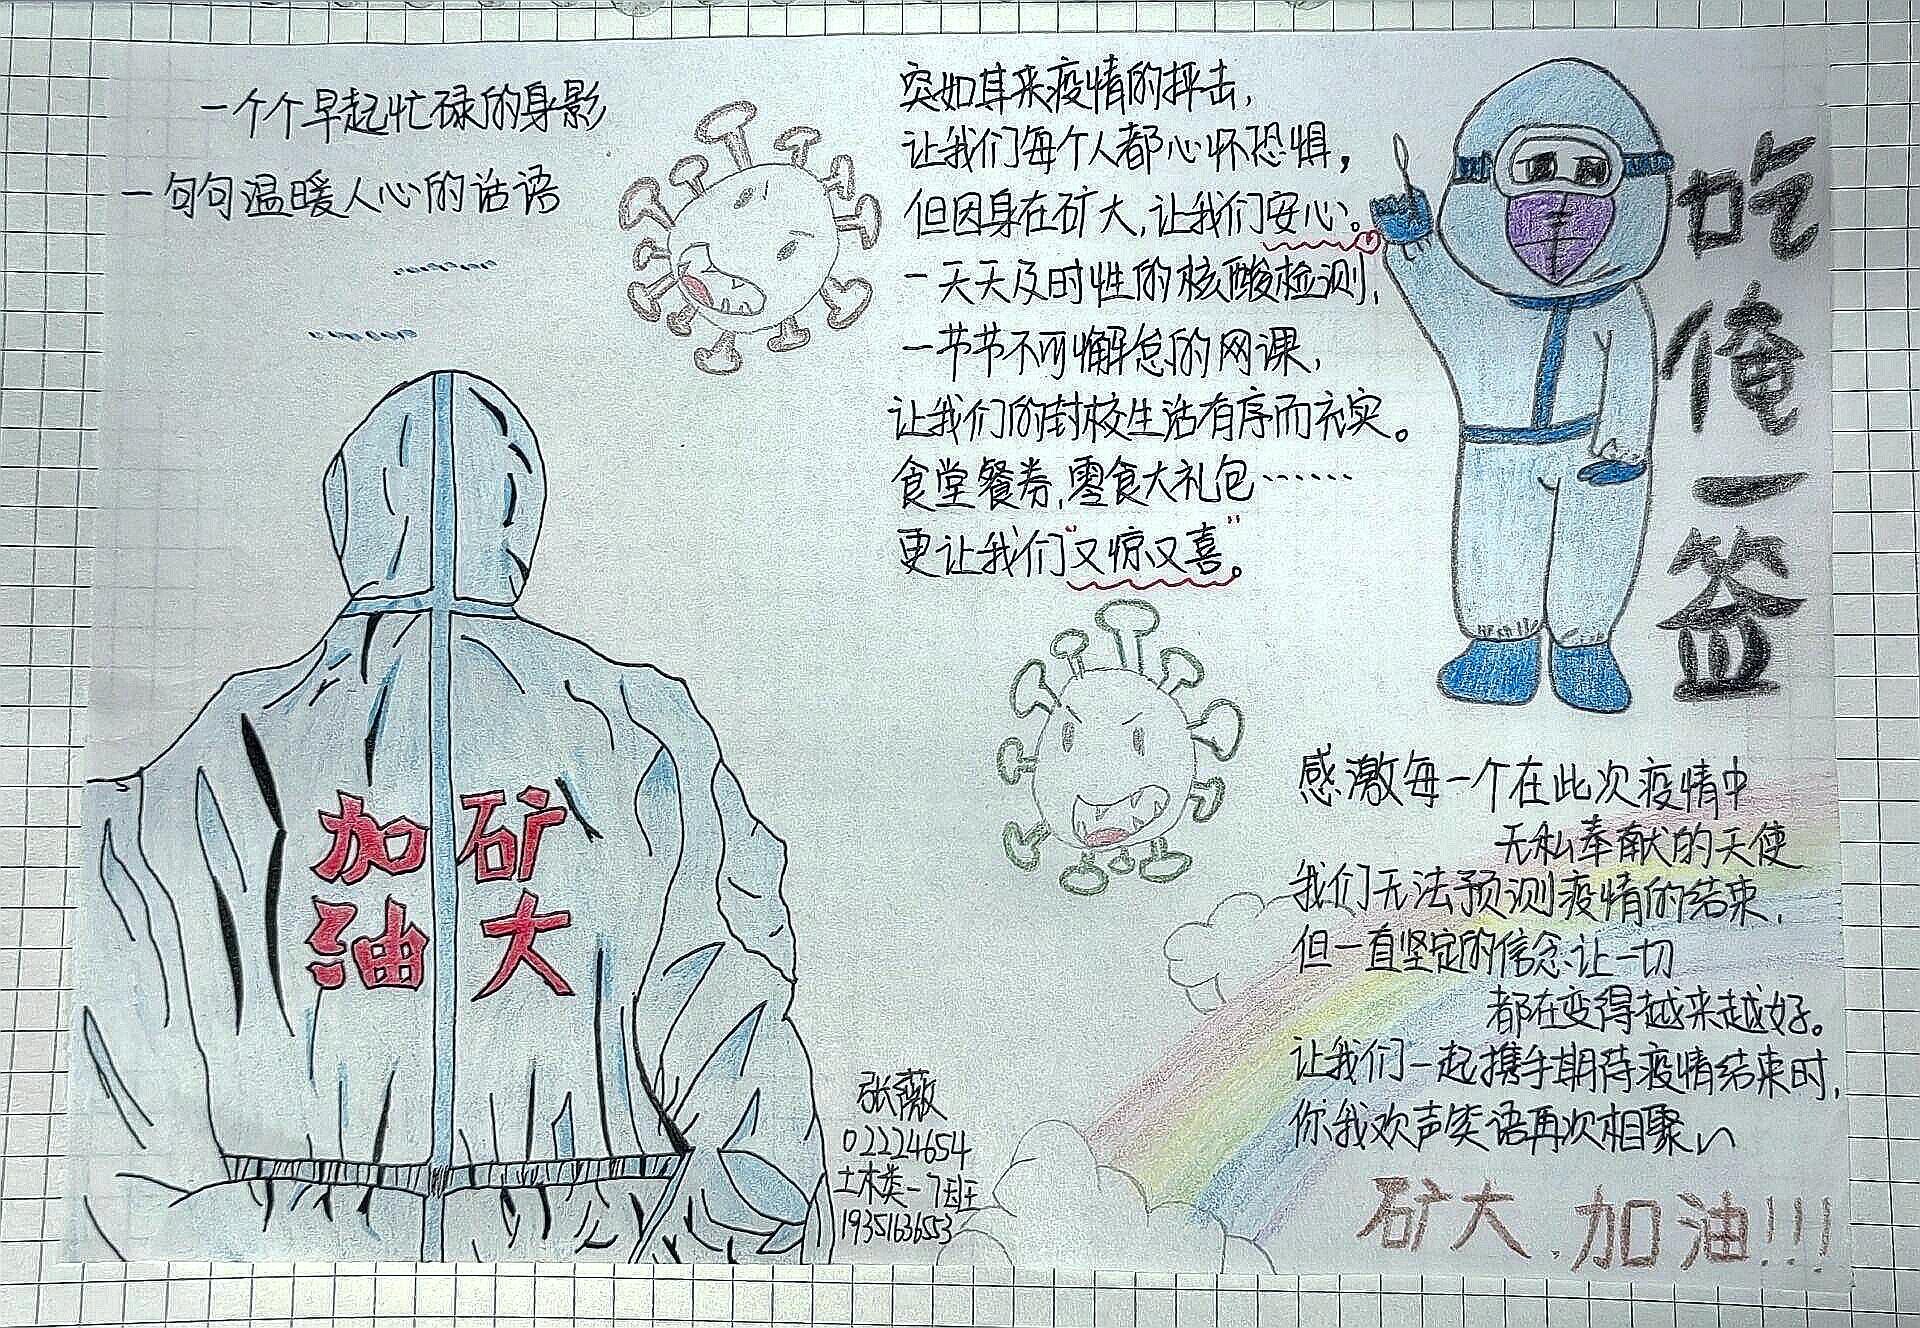 一个个早起忙碌的身影
一句句温暖人心的话语
突如其来疫情的抨击，
让我们每个人都心怀恐惧，
但因身在矿大，让我们安心。
一天天及时性的核酸检测，
一节节不可懈怠的网课，
让我们的封校生活有序而充实。
食堂餐券，零食大礼包……
更让我们“又惊又喜”。
吃俺一签
加油
矿大
感激每一个在此次疫情中
无私奉献的天使
我们无法预测疫情的结束，
但一直坚定的信念让一切
都在变得越来越好。
让我们一起携手期待疫情结束时，
你我欢声笑语再次相聚~
矿大，加油!!!
张薇
02224654
土木类一7班
19351636553